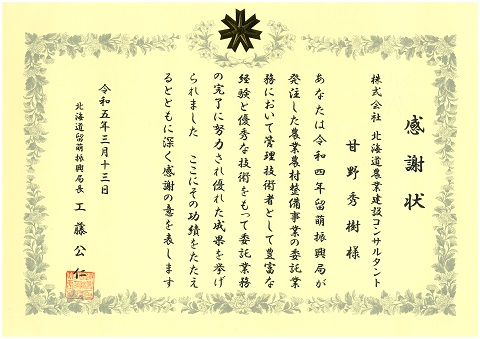 感謝状
株式会社 北海道農業建設コンサルタント
甘野秀樹様
あなたは令和四年留萌振興局が
発注した農業農村整備事業の委託業
務において管理技術者として豊富な
経験と優秀な技術をもって委託業務
の完了に努力され優れた成果を挙げ
られました ここにその功績をたたえ
るとともに深く感謝の意を表します
令和五年三月十三日
北海道留萌振興局長 工藤公仁